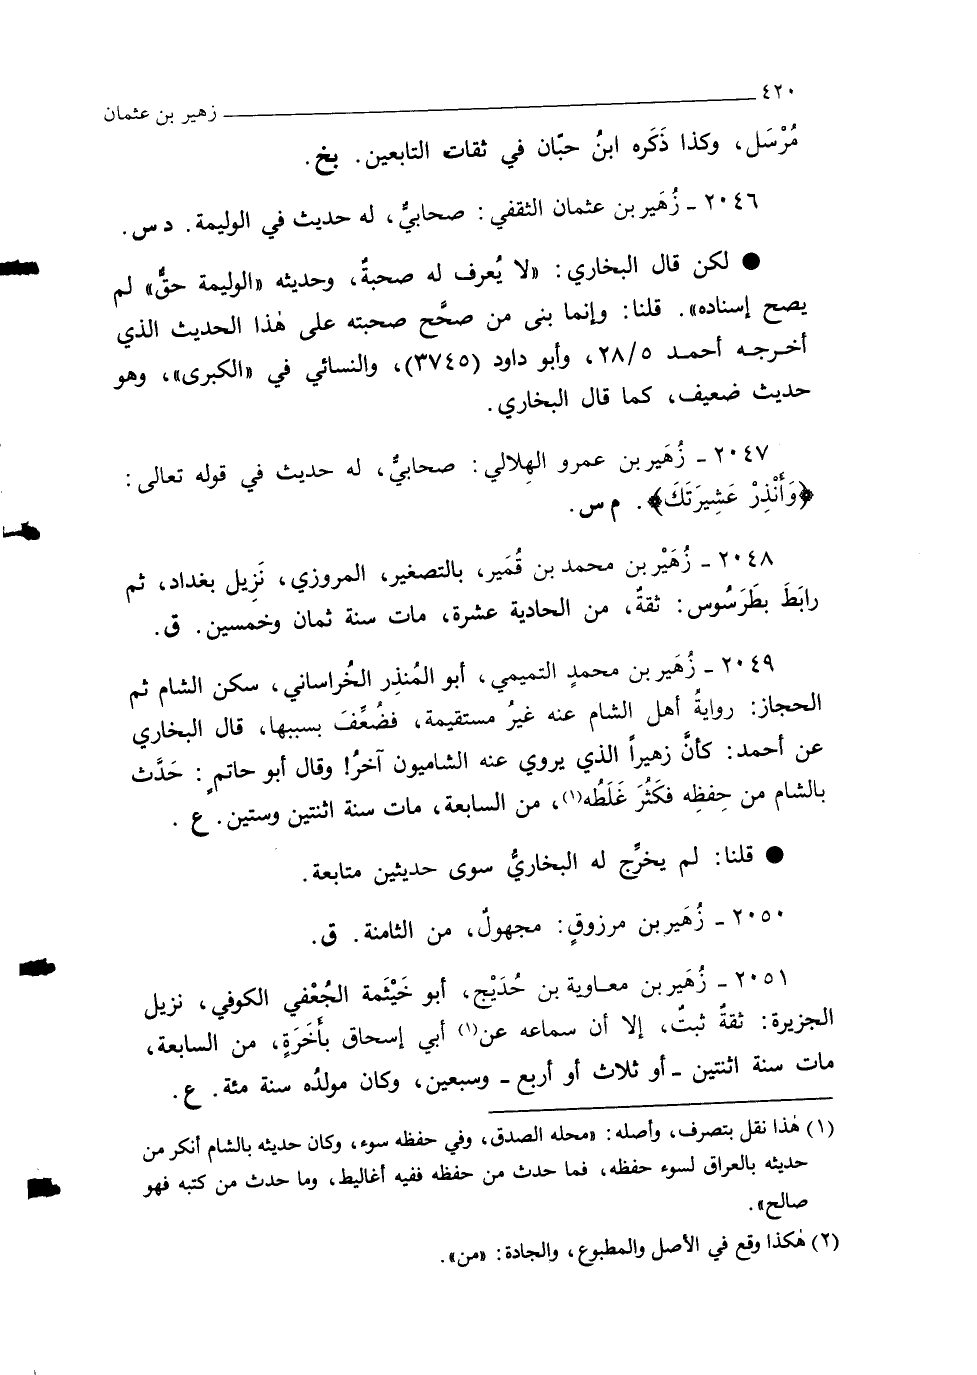 ٤٢٠ ــــــ زهير بن عثمان
مُرْسَل، وكذا ذَكَره ابنُ حبّان في ثقات التابعين. بخ.
٢٠٤٦ ـ زُهَير بن عثمان الثقفي: صحابيٌّ، له حديث في الوليمة. د س.
● لكن قال البخاري: «لا يُعرف له صحبةٌ، وحديثه «الوليمة حقٌّ» لم
يصح إسناده». قلنا: وإنما بنى من صحَّح صحبته على هٰذا الحديث الذي
أخرجه أحمد ٢٨/٥، وأبو داود (٣٧٤٥)، والنسائي في «الكبرى»، وهو
حديث ضعيف، كما قال البخاري.
٢٠٤٧ ـ زُهَير بن عمرو الهِلالي: صحابيٌّ، له حديث في قوله تعالى:
﴿وَأَنْذِرْ عَشِيرَتَكَ﴾. م س.
٢٠٤٨ ـ زُهَيْر بن محمد بن قُمَير، بالتصغير، المروزي، نَزِيل بغداد، ثم
رابَطَ بطَرَسُوس: ثقةٌ، من الحادية عشرة، مات سنة ثمان وخمسين. ق.
٢٠٤٩ ـ زُهَير بن محمدٍ التميمي، أبو المُنذِر الخُراساني، سكن الشام ثم
الحجاز: روايةُ أهل الشام عنه غيرُ مستقيمة، فضُعِّفَ بسببها، قال البخاري
عن أحمد: كأنَّ زهيراً الذي يروي عنه الشاميون آخرُ! وقال أبو حاتمٍ: حَدَّث
بالشام من حِفظِه فكَثُرَ غَلَطُه(١)، من السابعة، مات سنة اثنتين وستين. ع.
● قلنا: لم يخرِّج له البخاريُّ سوى حديثين متابعة.
٢٠٥٠ ـ زُهَير بن مرزوقٍ: مجهولٌ، من الثامنة. ق.
٢٠٥١ ـ زُهَير بن معاوية بن حُدَيْج، أبو خَيْثَمة الجُعْفي الكوفي، نزيل
الجزيرة: ثقةٌ ثبتٌ، إلا أن سماعه عن(١) أبي إسحاق بأَخَرَةٍ، من السابعة،
مات سنة اثنتين ـ أو ثلاث أو أربع ـ وسبعين، وكان مولدُه سنة مئة. ع.
(١) هٰذا نقل بتصرف، وأصله: «محله الصدق، وفي حفظه سوء، وكان حديثه بالشام أنكر من
حديثه بالعراق لسوء حفظه، فما حدث من حفظه ففيه أغاليط، وما حدث من كتبه فهو
صالح».
(٢) هٰكذا وقع في الأصل والمطبوع، والجادة: «من».